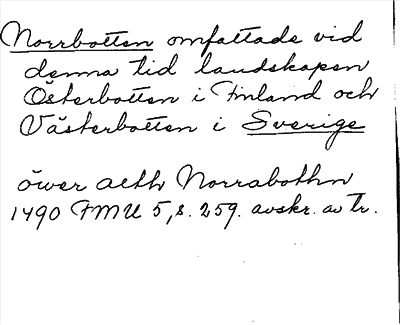 Norrbotten omfattade vid
denna tid landskapen
Österbotten i Finland och
Västerbotten i Sverige
öwer alth Norrabothn
1490 FMU 5, s. 259. avskr. av tr.